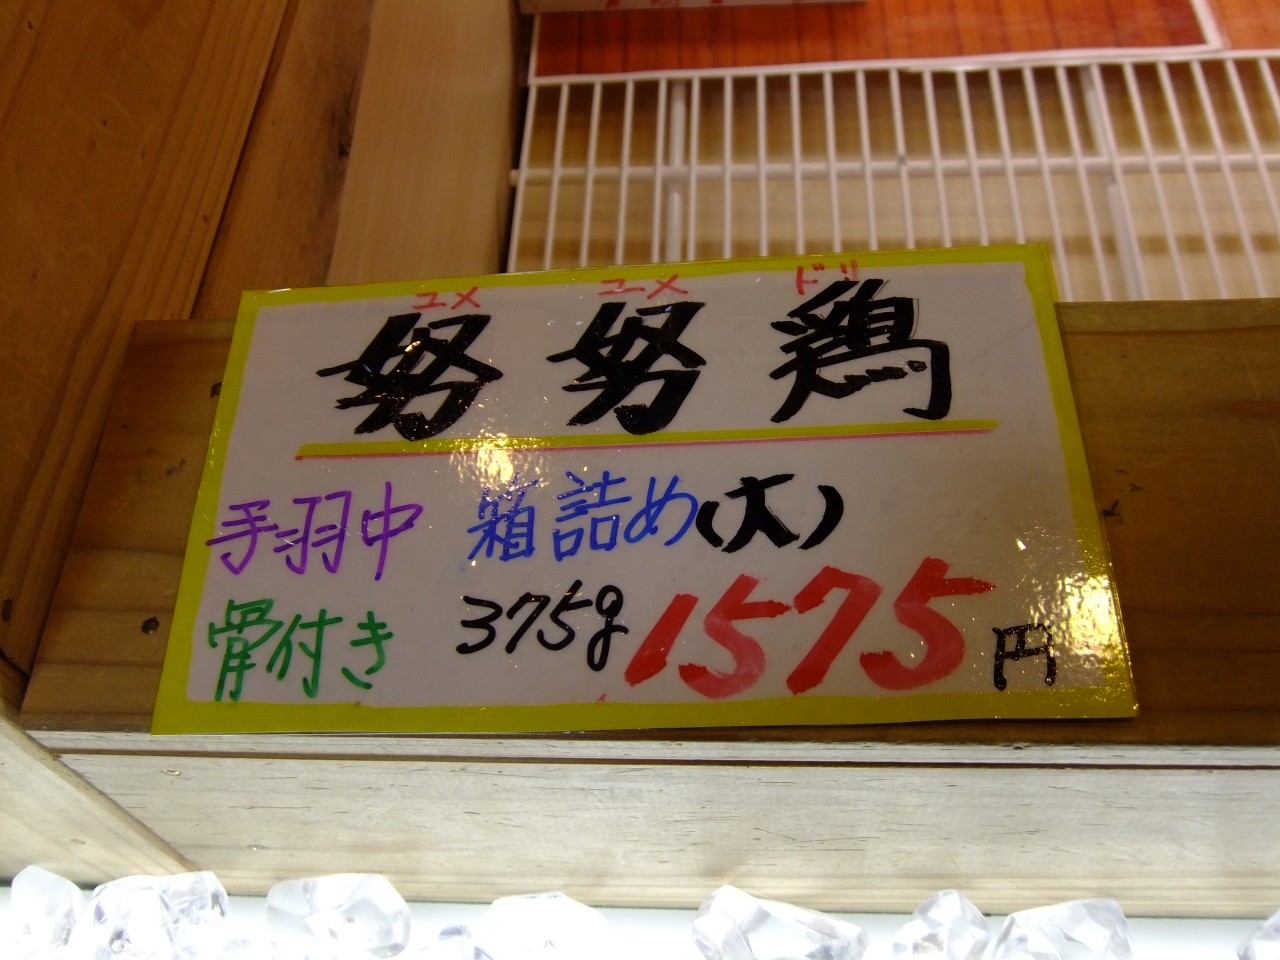 ユメ ユメ ドリ
努努鶏
手羽中 箱詰め(大)
骨付き 375g 1575円